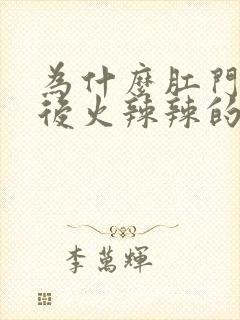 為什麼肛門
後火辣辣的
李萬輝